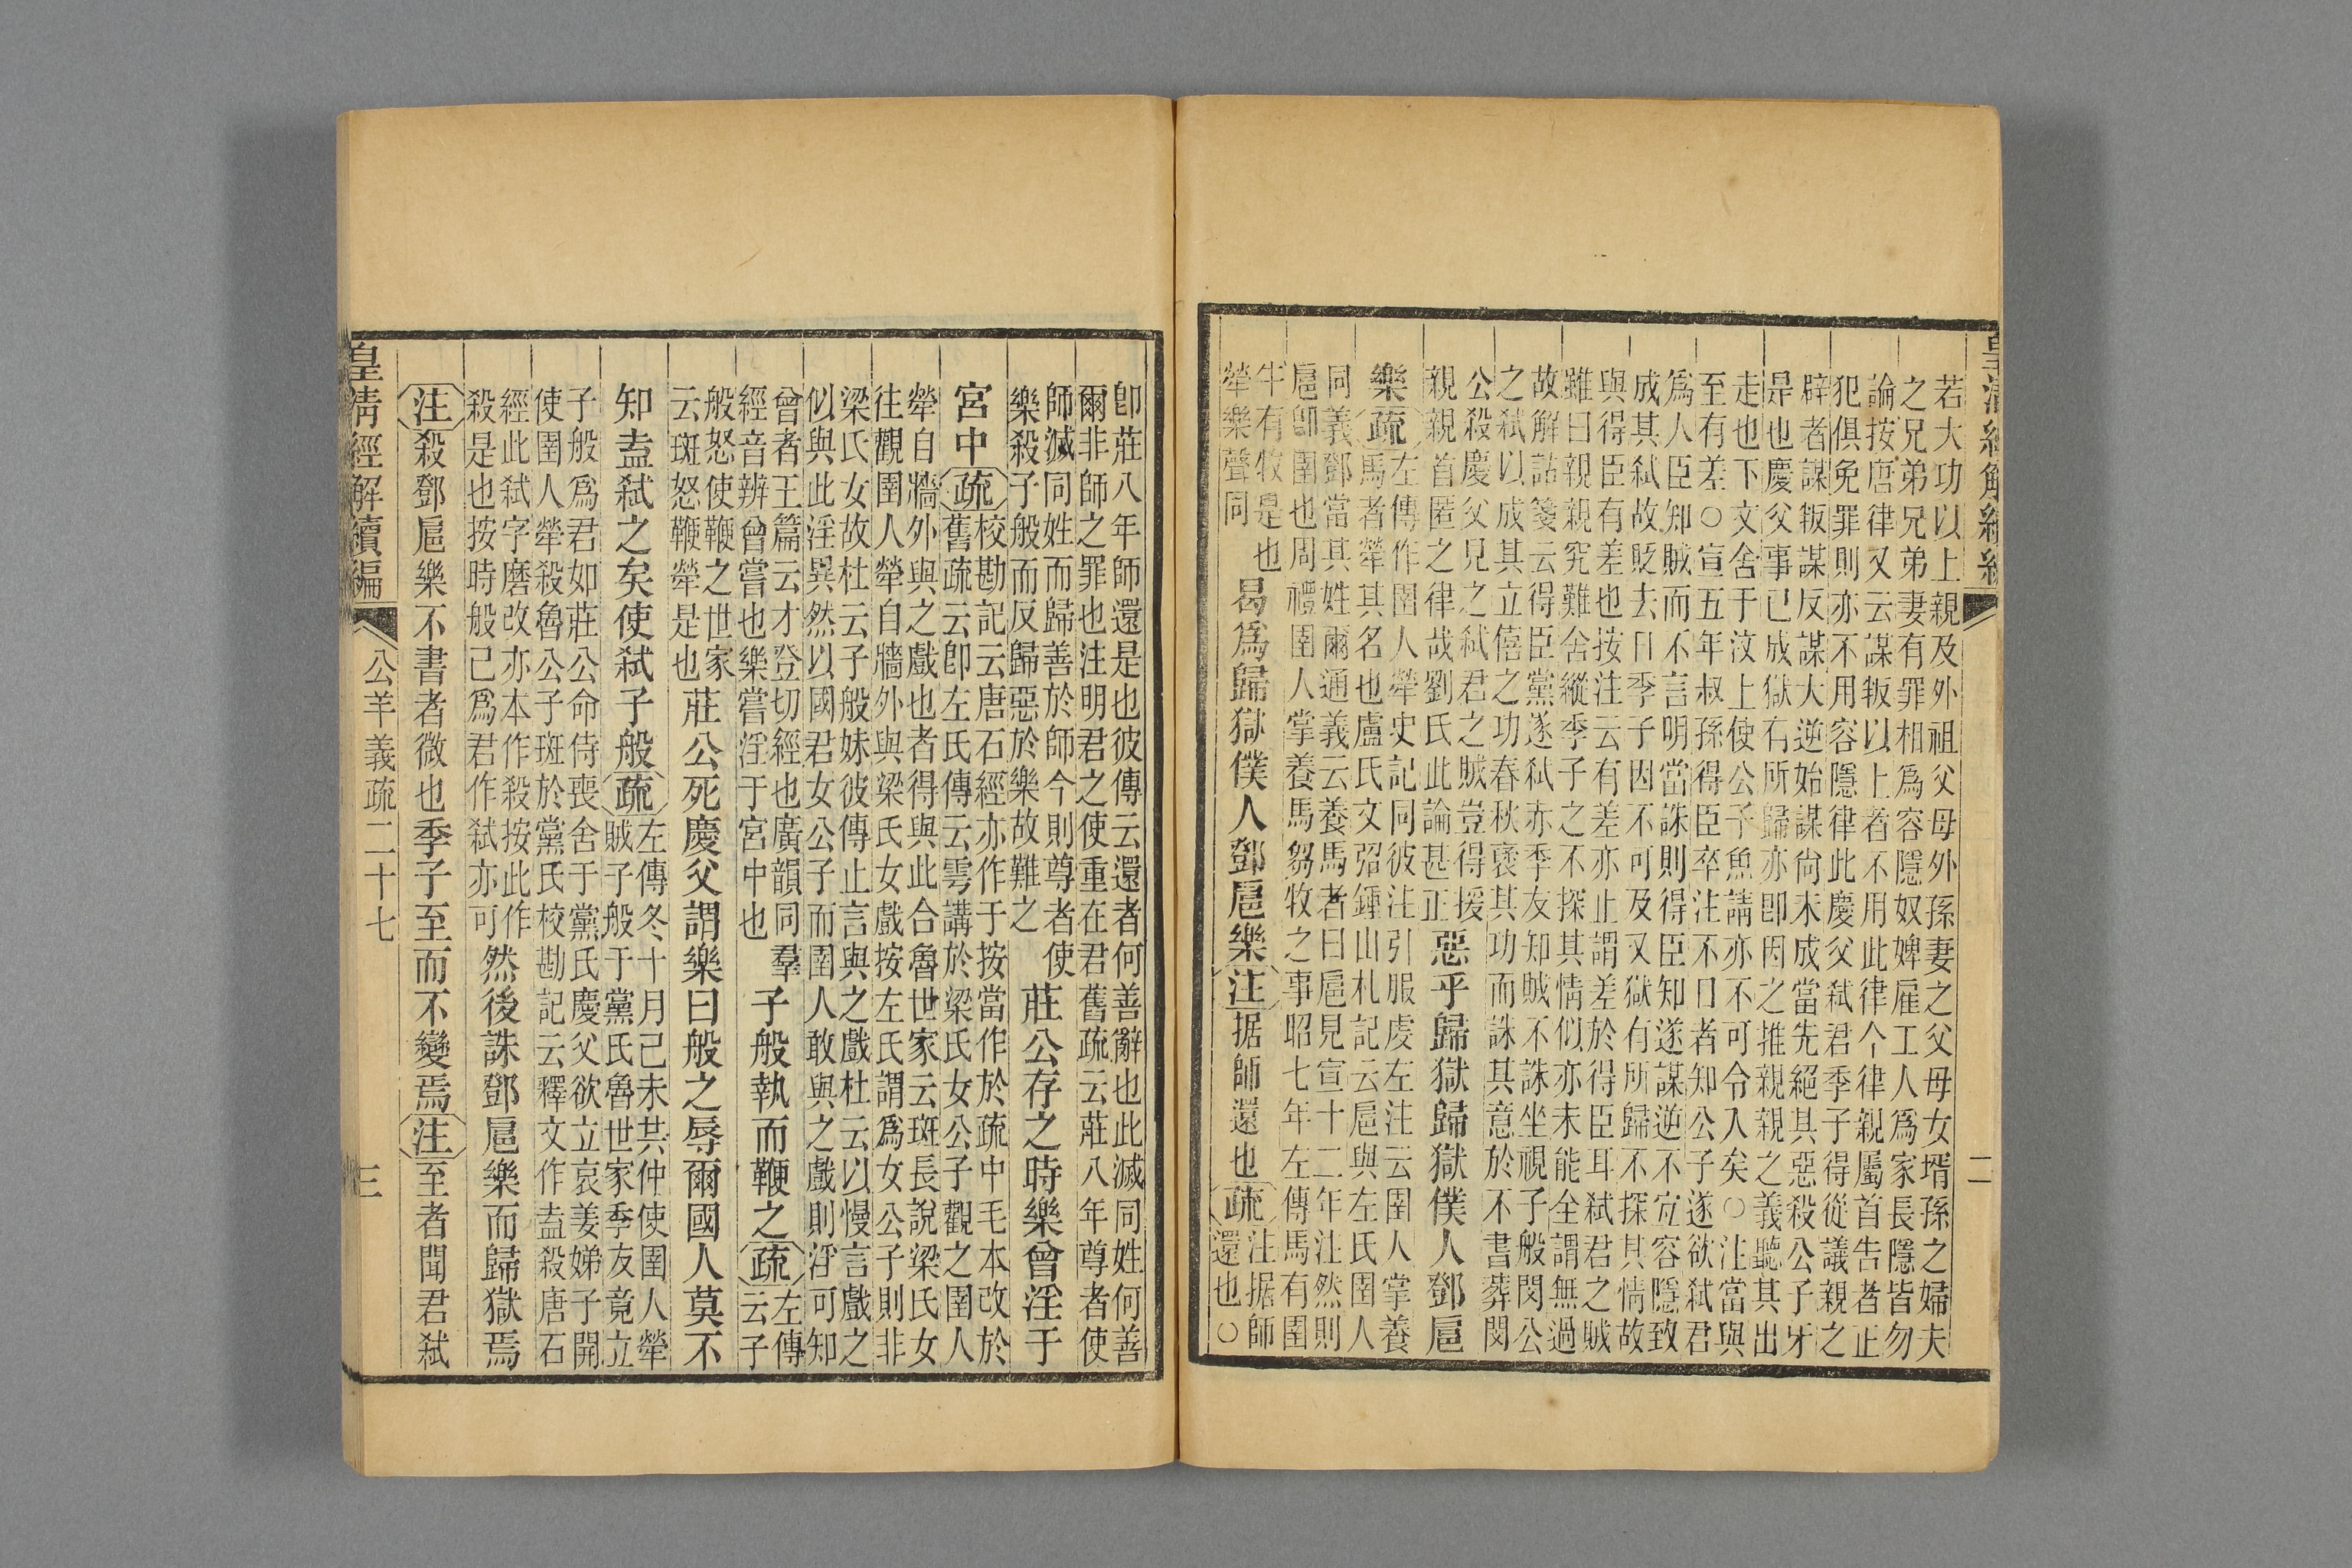 皇清經解續編
二
若大功以上親及外祖父母外孫妻之父母女壻孫之婦夫
之兄弟兄弟妻有罪相爲容隱奴婢雇工人爲家長隱皆勿
論按唐律又云謀叛以上者不用此律今律親屬首告者正
犯俱免罪則亦不用容隱律此慶父弑君季子得從議親之
辟者謀叛謀反謀大逆始謀尙未成當先絕其惡殺公子牙
是也慶父事已成獄有所歸亦卽因之推親親之義聽其出
走也下文舍于汶上使公子魚請亦不可令入矣○注當與
至有差○宣五年叔孫得臣卒注不日者知公子遂欲弑君
爲人臣知賊而不言明當誅則得臣知遂謀逆不宜容隱致
成其弑故貶去日季子因不可及又獄有所歸不探其情故
與得臣有差也按注云有差亦止謂差於得臣耳弑君之賊
雖曰親親究難舍縱季子之不探其情似亦未能全謂無過
故解詁箋云得臣黨遂弑亦季友知賊不誅坐視子般閔公
之弑以成其立僖之功春秋褒其功而誅其意於不書葬閔
公殺慶父兄之弑君之賊豈得援
親親首匿之律哉劉氏此論甚正
惡乎歸獄歸獄僕人鄧扈
樂疏
左傳作圉人犖史記同彼注引服虔左注云圉人掌養
馬者犖其名也盧氏文弨鍾山札記云扈與左氏圉人
同義鄧當其姓爾通義云養馬者曰扈見宣十二年注然則
扈卽圉也周禮圉人掌養馬芻牧之事昭七年左傳馬有圉
牛有牧是也
犖樂聲同
曷爲歸獄僕人鄧扈樂注据師還也疏
注据師
還也○
卽莊八年師還是也彼傳云還者何善辭也此滅同姓何善
爾非師之罪也注明君之使重在君舊疏云莊八年尊者使
師滅同姓而歸善於師今則尊者使
樂殺子般而反歸惡於樂故難之
莊公存之時樂曾淫于
宮中疏
校勘記云唐石經亦作于按當作於疏中毛本改於
舊疏云卽左氏傳云雩講於梁氏女公子觀之圉人
犖自牆外與之戲也者得與此合魯世家云斑長說梁氏女
往觀圉人犖自牆外與梁氏女戲按左氏謂爲女公子則非
梁氏女故杜云子般妹彼傳止言與之戲杜云以慢言戲之
似與此淫異然以國君女公子而圉人敢與之戲則淫可知
曾者王篇云才登切經也廣韻同羣
經音辨曾嘗也樂嘗淫于宮中也
子般執而鞭之疏
左傳
云子
般怒使鞭之世家
云斑怒鞭犖是也
莊公死慶父謂樂曰般之辱爾國人莫不
知盍弑之矣使弑子般疏
左傳冬十月己未共仲使圉人犖
賊子般于黨氏魯世家季友竟立
子般爲君如莊公命侍喪舍于黨氏慶父欲立哀姜娣子開
使圉人犖殺魯公子斑於黨氏校勘記云釋文作盍殺唐石
經此弑字磨改亦本作殺按此作
殺是也按時般已爲君作弑亦可
然後誅鄧扈樂而歸獄焉
注殺鄧扈樂不書者微也季子至而不變焉注至者聞君弑
皇淸經解續編
公羊義疏二十七
三